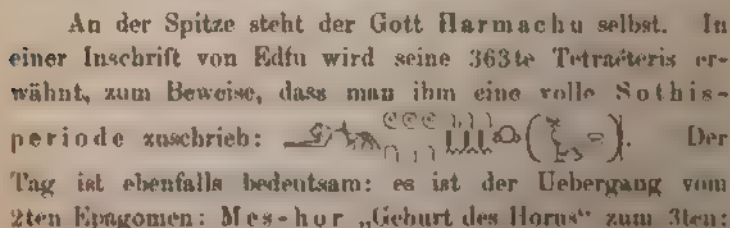 An der Spitze steht der Gott Harmachu selbst. In
einer Inschrift von Edfu wird seine 363te Tetraëteris er-
wähnt, zum Beweise, dass man ihm eine volle Sothis-
periode zuschrieb: Der
Tag ist ebenfalls bedeutsam: es ist der Uebergang vom
2ten Epagomen: Mes-hor „Geburt des Horus“ zum 3ten: